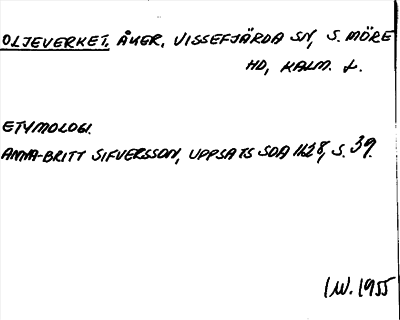 OLJEVERKET, ÅKER, VISSEFJÄRDA SN, S. MÖRE
HD, KALM. L.
ETYMOLOGI.
ANNA-BRITT SIFVERSSON, UPPSATS SOA 1628, S. 39.
I.W. 1955